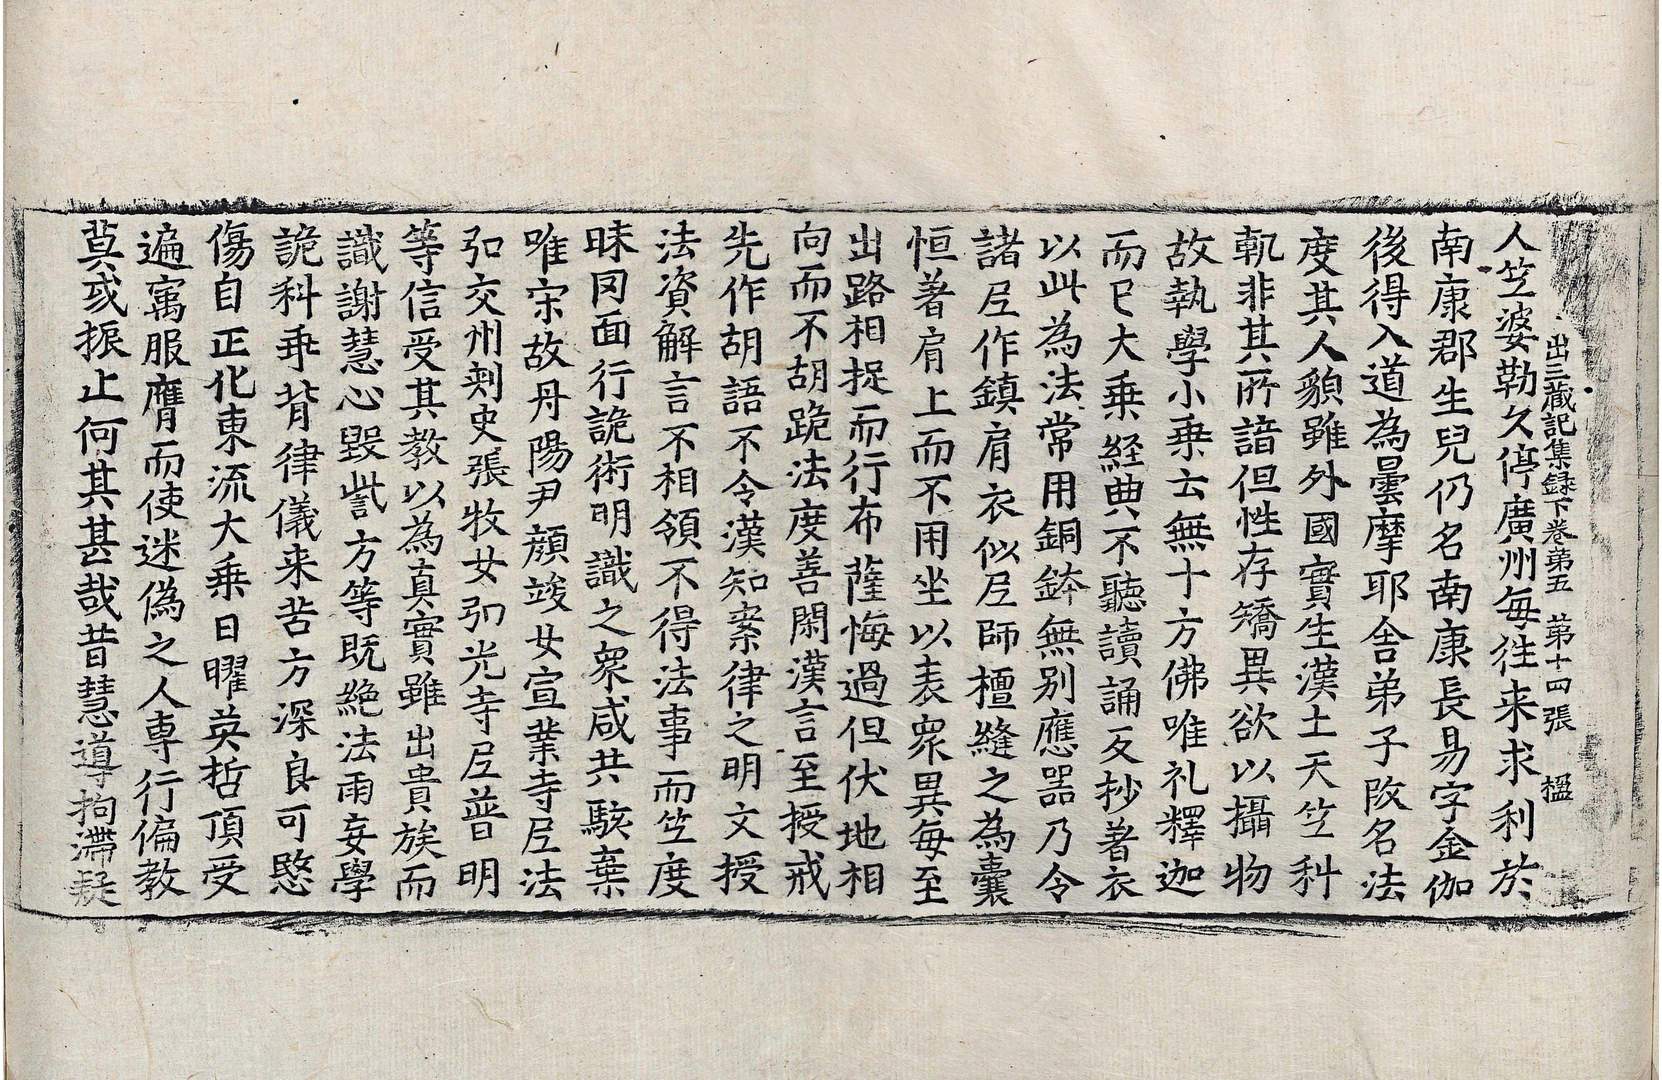 出三藏記集錄下卷第五　第十四張　楹
人竺婆勒久停廣州每往来求利於
南康郡生兒仍名南康長易字金伽
後得入道為曇摩耶舍弟子改名法
度其人貌雖外國實生漢土天竺科
軌非其所諳但性存矯異欲以攝物
故執學小乗云無十方佛唯礼釋迦
而已大乗経典不聽讀誦反抄著衣
以此為法常用銅鉢無别應器乃令
諸尼作鎮肩衣似尼師檀縫之為囊
恒著肩上而不用坐以表衆異每至
出路相捉而行布薩悔過但伏地相
向而不胡跪法度善閑漢言至授戒
先作胡語不令漢知案律之明文授
法資解言不相領不得法事而竺度
昧罔面行詭術明識之衆咸共駭棄
唯宋故丹陽尹顔竣女宣業寺尼法
弘交州刺史張牧女弘光寺尼普明
等信受其教以為真實雖出貴族而
識謝慧心毀訾方等既絶法雨妄學
詭科乖背律儀来苦方深良可愍
傷自正化東流大乗日曜英哲頂受
遍㝢服膺而使迷偽之人専行偏教
莫或振止何其甚哉昔慧導拘滯疑